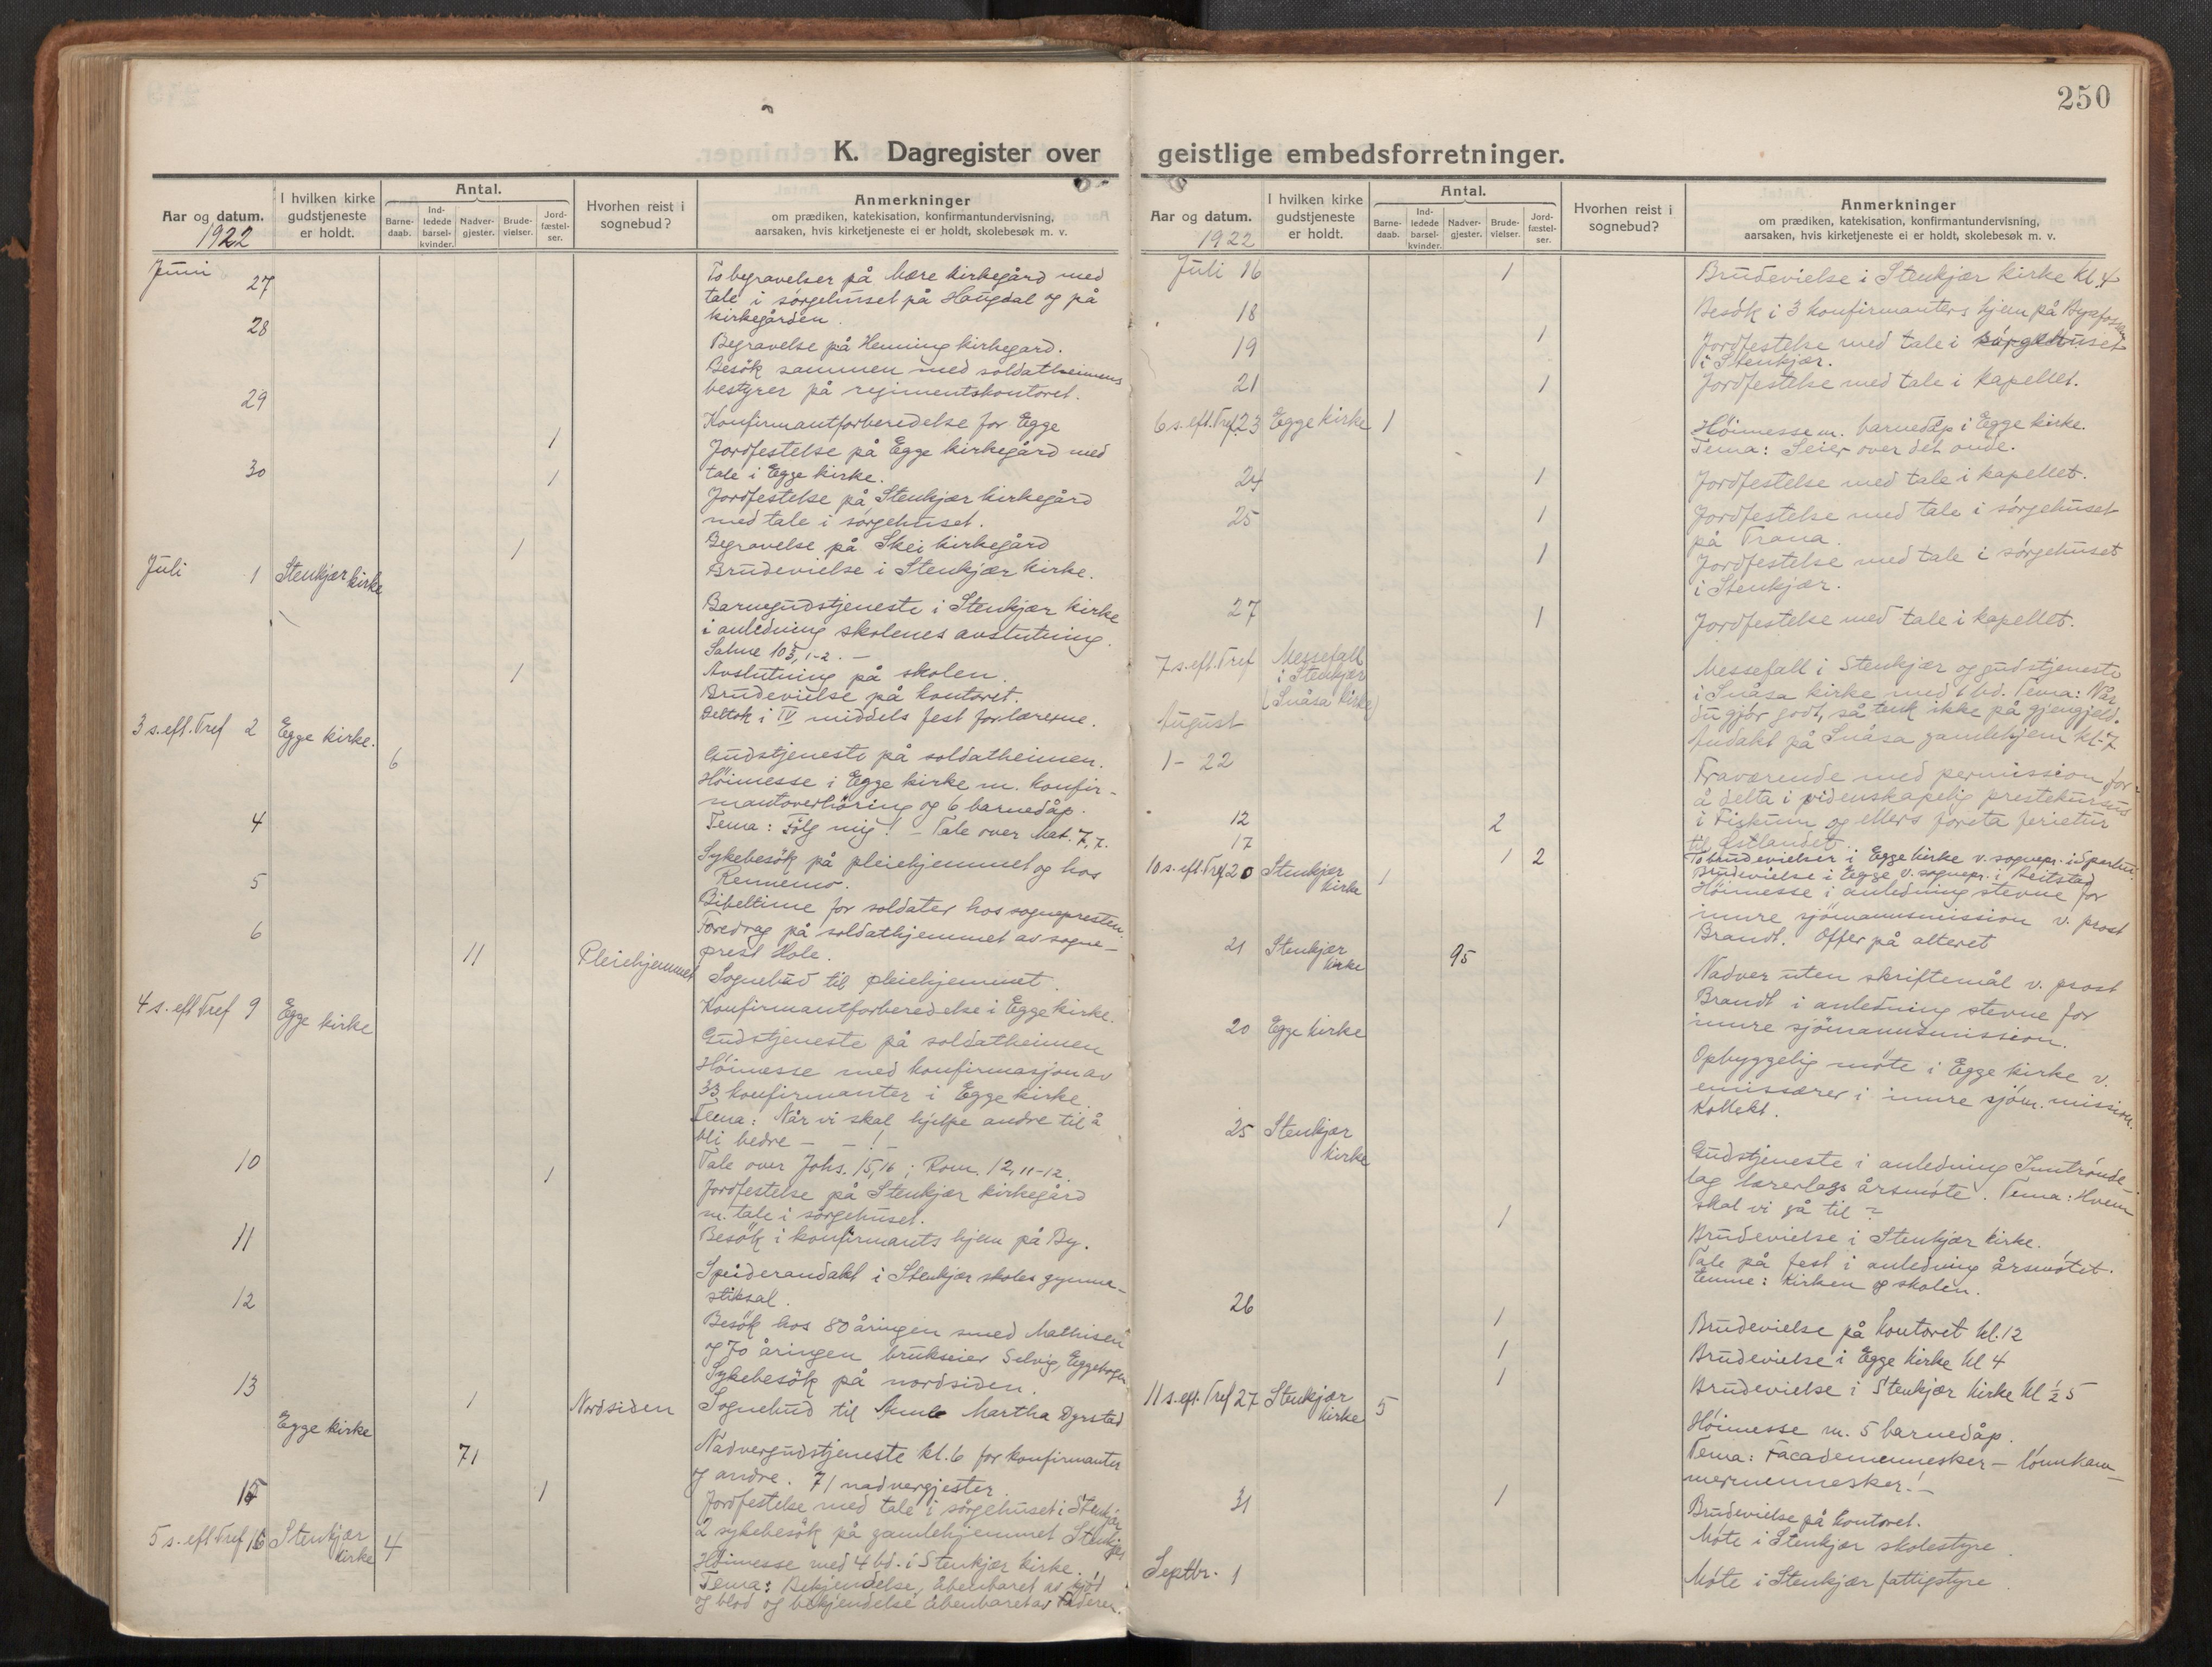 250
K. Dagregister over geistlige embedsforretninger.
Aar og datum.
1922
I hvilken kirke gudstjeneste er holdt.
Antal.
Barne-daab.
Ind-ledede barsel-kvinder.
Nadver-gjester.
Brude-vielser.
Jord-fæstel-ser.
Hvorhen reist i sognebud?
Anmerkninger
om prædiken, katekisation, konfirmantundervisning,
aarsaken, hvis kirketjeneste ei er holdt, skolebesøk m. v.
Juni 27 To begravelser på Mære kirkegård med
tale i sørgehuset på Haugdal og på
kirkegården.
28 Begravelse på Henning kirkegard.
Besök sammen med soldatheimens
bestyrer på regimentskontoret.
29 Konfirmantforberedelse for Egge
1 Jordfestelse på Egge kirkegård med
tale i Egge kirke.
30 1 Jordfestelse på Stenkjær kirkegård
med tale i sørgehuset.
Begravelse på Skei kirkegård
1 Brudevielse i Stenkjær kirke.
Juli 1 Stenkjær kirke
Barnegudstjeneste i Stenkjær kirke
i anledning skolenes avslutning.
Salme 103, 1-2. —
Avslutning på skolen.
1 Brudevielse på kontoret.
Deltok i IV middels fest for lærerne.
3 s. eft. Tref 2 Egge kirke. 6
Gudstjeneste på soldatheimen.
Höimesse i Egge kirke m. konfir-
mantoverhöring og 6 barnedåp.
Tema: Fölg mig! – Tale over Mat. 7, 7.
4 Sykebesök på pleiehjemmet og hos
Rennemo.
5 Bibeltime for soldater hos sognepresten.
6 Foredrag på soldathjemmet av sogne-
prest Hole.
11 Pleiehjemmet Sognebud til pleiehjemmet.
Konfirmantforberedelse i Egge kirke.
4 s. eft Tref 9 Egge kirke
Gudstjeneste på soldatheimen
Höimesse med konfirmasjon av
33 konfirmanter i Egge kirke.
Tema: Når vi skal hjelpe andre til å
bli bedre – – !
Tale over Johs. 15, 16; Rom. 12, 11-12.
10 1 Jordfestelse på Stenkjær kirkegård
m. tale i sørgehuset.
Besök i konfirmants hjem på By.
11 Speiderandakt i Stenkjær skoles gymna-
stiksal.
12 Besök hos 80 åringen smed Mathisen
og 70 åringen brukseier Selvig, Eggebogen
Sykebesök på nordsiden.
13 1 Nordsiden Sognebud til Martha Dyrstad
Egge kirke 71 Nadvergudstjeneste kl. 6 for konfirmanter
og andre. 71 nadvergjester
15 1 Jordfestelse med tale i sørgehuset i Stenkjær
2 sykebesök på gamlehjemmet Stenkjær
5 s. eft Tref 16 Stenkjær kirke 4 Höimesse med 4 bd. i Stenkjær kirke.
Tema: Bekjendelse, åbenbaret av kjöt
og blod og bekjendelse åbenbaret av Faderen.
Aar og datum.
1922
I hvilken kirke gudstjeneste er holdt.
Antal.
Barne-daab.
Ind-ledede barsel-kvinder.
Nadver-gjester.
Brude-vielser.
Jord-fæstel-ser.
Hvorhen reist i sognebud?
Anmerkninger
om prædiken, katekisation, konfirmantundervisning,
aarsaken, hvis kirketjeneste ei er holdt, skolebesøk m. v.
Juli 16 1 Brudevielse i Stenkjær kirke kl. 4
18 Besök i 3 konfirmanters hjem på Byafossen
19 1 Jordfestelse med tale i sørgehuset
i Stenkjær.
21 1 Jordfestelse med tale i kapellet.
6 s. eft. Tref. 23 Egge kirke 1 Höimesse m. barnedåp i Egge kirke.
Tema: Seier over det onde.
24 1 Jordfestelse med tale i kapellet.
25 1 Jordfestelse med tale i sørgehuset
på Trana.
1 Jordfestelse med tale i sørgehuset
i Stenkjær.
27 1 Jordfestelse med tale i kapellet.
7 s. eft. Tref Messefall i Stenkjær (Snåsa kirke)
Messefall i Stenkjær og gudstjeneste
i Snåsa kirke med 6 bd. Tema: Når
du gjør godt, så tenk ikke på gjengjeld.
Andakt på Snåsa gamlehjem kl. 7
August
1 - 22 Fraværende med permission for
å delta i videnskapelig prestekursus
i Fiskum og ellers foreta ferietur
til Østlandet.
12 2 To brudevielser i Egge kirke v. sognepr. i Sparbu.
17 1 2 Brudevielse i Egge v. sognepr. i Beitstad
10 s. eft. Tref 20 Stenkjær kirke 1 Höimesse i anledning stevne for
indre sjömannsmission v. prost
Brandt. Offer på alteret
21 Stenkjær kirke 95 Nadver uten skriftemål v. prost
Brandt i anledning stevne for
indre sjömannsmission.
20 Egge kirke Opbyggelig möte i Egge kirke v.
emissærer i indre sjöm. mission.
Kollekt.
25 Stenkjær kirke Gudstjeneste i anledning Inntrønde-
lag lærerlags årsmöte. Tema: Hvem
skal vi gå til?
1 Brudevielse i Stenkjær kirke.
Tale på fest i anledning årsmötet.
Emne: Kirken og skolen.
26 1 Brudevielse på kontoret kl. 12
1 Brudevielse i Egge kirke kl 4
1 Brudevielse i Stenkjær kirke kl ½ 5
11 s. eft. Tref 27 Stenkjær kirke 5 Höimesse m. 5 barnedåp.
Tema: Facademennesker – lönnkam-
mermennesker! –
31 1 Brudevielse på kontoret.
Möte i Stenkjær skolestyre.
Septbr. 1 Möte i Stenkjær fattigstyre.